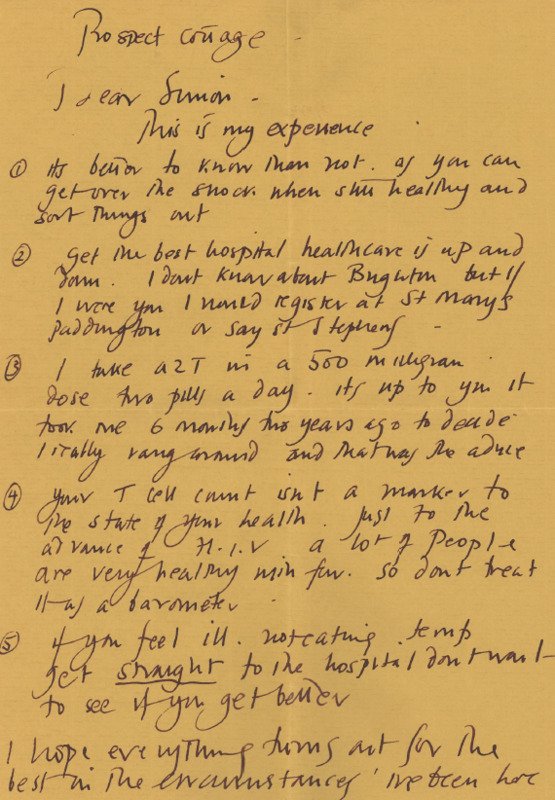 Prospect Cottage -
Dear Simon -
This is my experience
① its better to know than not. as you can
get over the shock when still healthy and
sort things out
② Get the best hospital healthcare is up and
down. I dont know about Brighton but if
I were you I would register at St Marys
Paddington or say St Stephens -
③ I take AZT in a 500 milligram
dose two pills a day. its up to you it
took me 6 months two years ago to decide
I really rang around and that was the advice
④ your T cell count isnt a marker to
the state of your health. Just to the
advance of H.I.V a lot of People
are very healthy with few. so dont treat
it as a barometer
⑤ if you feel ill. not eating. temp
get straight to the hospital dont wait
to see if you get better
I hope everything turns out for the
best in the circumstances ive been